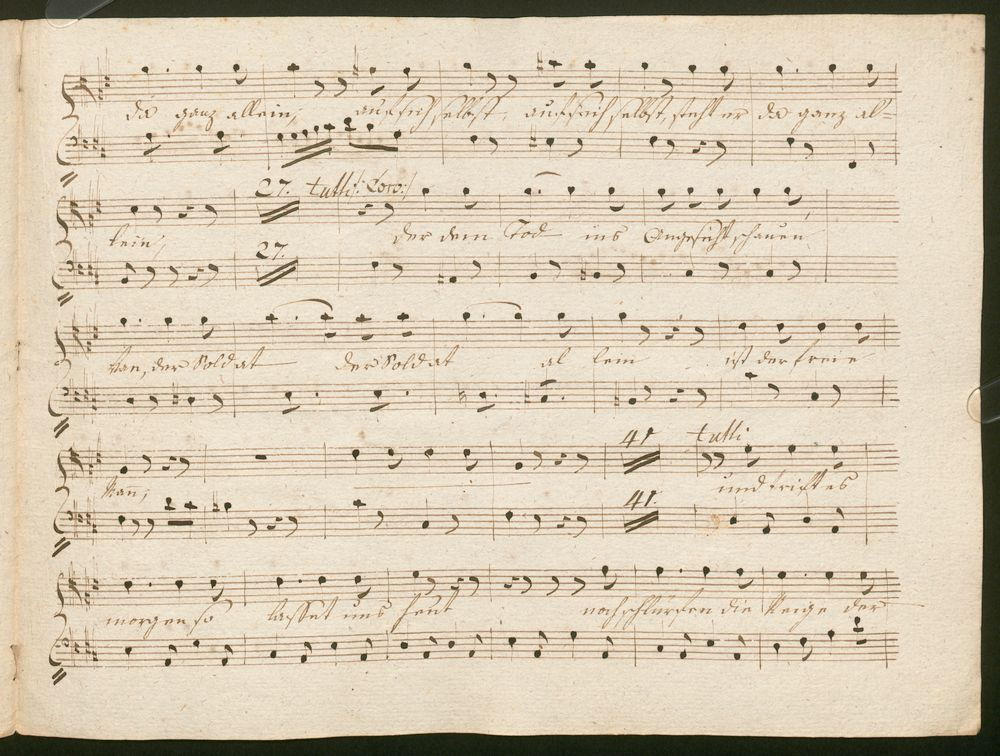 da ganz allein, auf sich selbst, auf sich selbst, steht er da ganz al=
27. tutti /: Coro :/
lein, der dem Tod ins Angesicht schauen
27.
kan, der Soldat der Soldat al lein ist der freie
41 tutti
Man, und trift es
41.
morgen so lasset uns heut noch schlürfen die Neige der